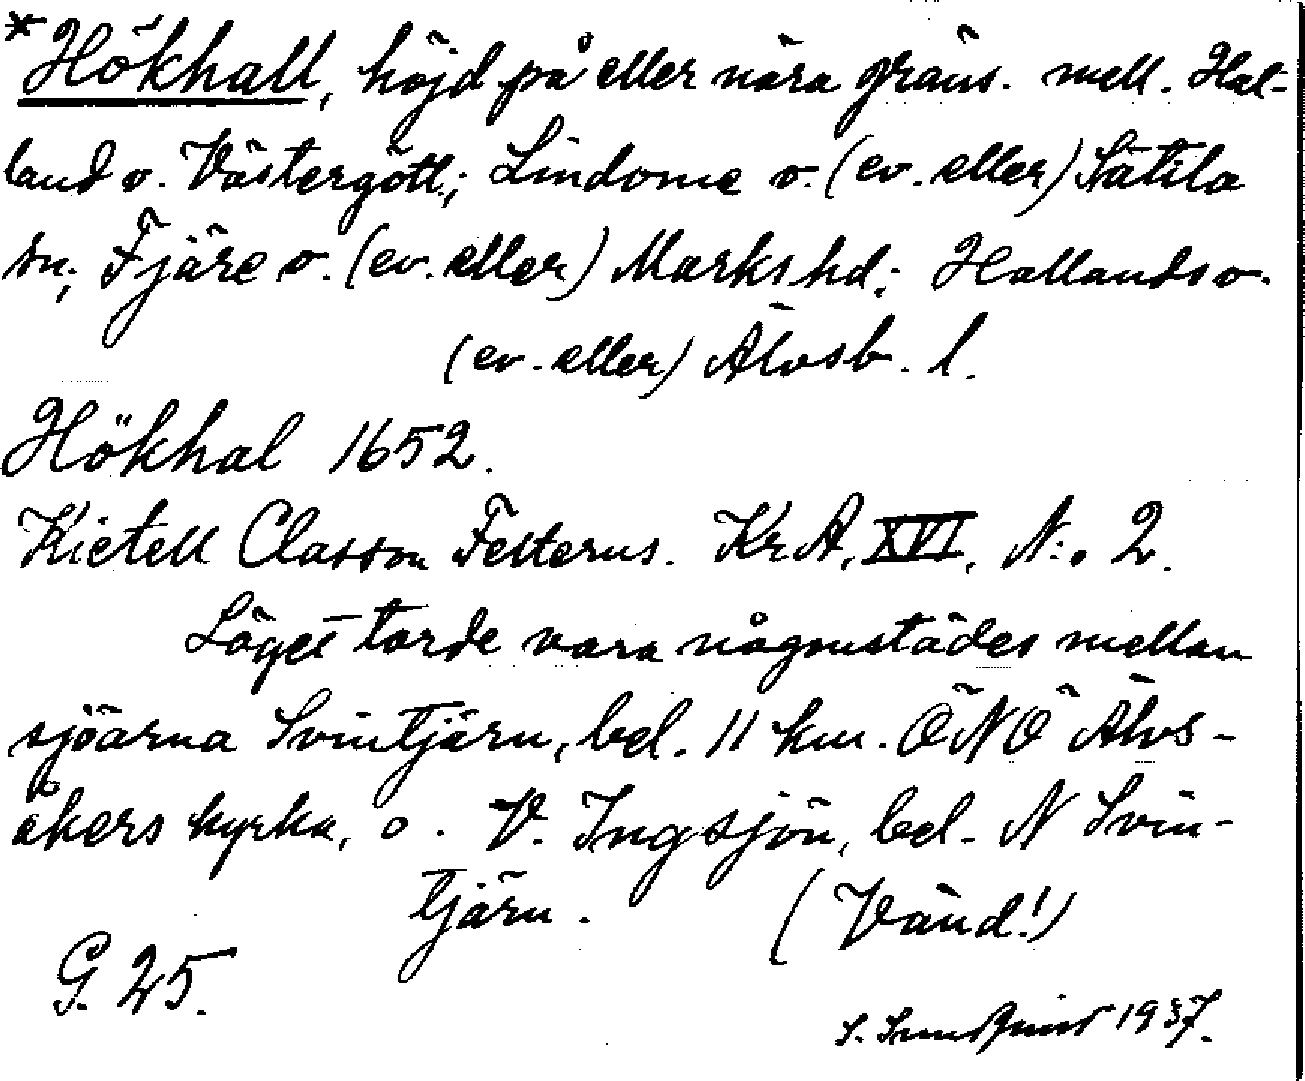 *Hökhall, höjd på eller nära gräns. mell. Hal-
land o. Västergötl.; Lindome o. (ev. eller) Sätila
sn; Fjäre o. (ev. eller) Marks hd; Hallands o.
(ev. eller) Älvsb. l.
Hökhal 1652.
Kietell Classon Felterus. KrA, XVI, N:o 2.
Läget torde vara någonstädes mellan
sjöarna Svintjärn, bel. 11 km. ÖNÖ Älvs-
åkers kyrka, o. V. Ingsjön, bel. N Svin-
tjärn. (Vänd!)
G. 25.
S. Sundquist 1937.